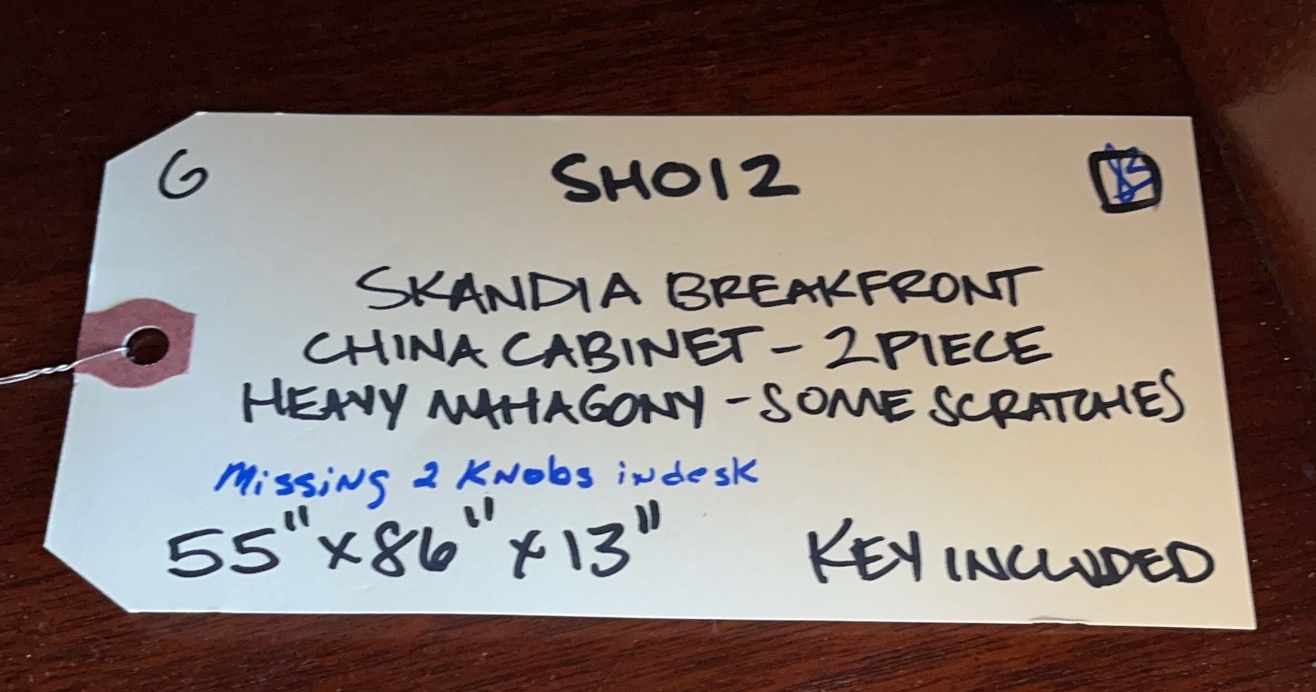 G SH012
SKANDIA BREAKFRONT
CHINA CABINET - 2 PIECE
HEAVY MAHAGONY - SOME SCRATCHES
Missing 2 Knobs in desk
55" x 86" x 13" KEY INCLUDED